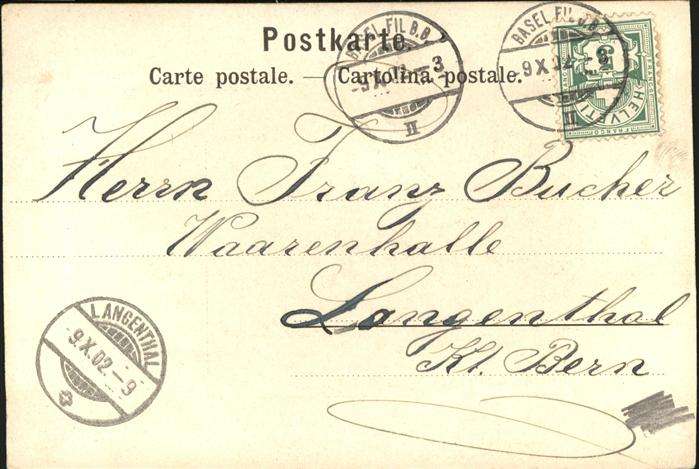 Postkarte.
Carte postale. — Cartolina postale.
BASEL FIL. B.B.
-9 X 02 - 3
II
BASEL FIL. B.B.
9 X 02
II
HELVETIA
FRANCO
Herrn Franz Bucher
Waarenhalle
Langenthal
Kt. Bern
LANGENTHAL
-9.X.02.-9